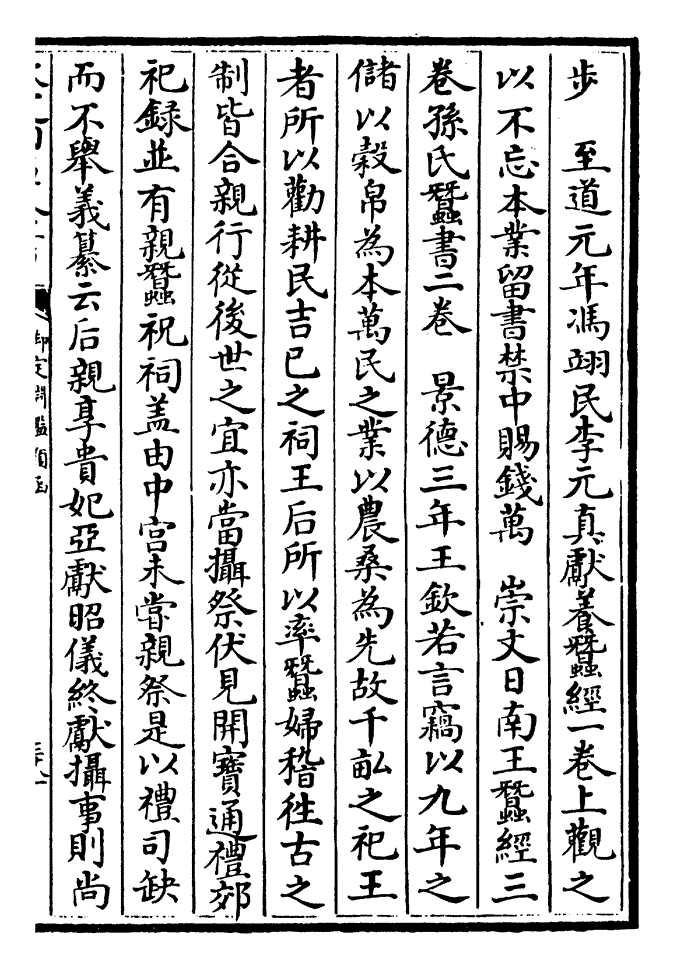 步　至道元年馮翊民李元真獻養蠶經一卷上觀之
以不忘本業留書禁中賜錢萬　崇文目南王蠶經三
卷孫氏蠶書二卷　景德三年王欽若言竊以九年之
儲以榖帛為本萬民之業以農桑為先故千畝之祀王
者所以勸耕民吉巳之祠王后所以率蠶婦稽徃古之
制皆合親行從後世之宜亦當攝祭伏見開寶通禮郊
祀録並有親蠶祝祠盖由中宫未嘗親祭是以禮司缺
而不舉義纂云后親享貴妃亞獻昭儀終獻攝事則尚
御定淵鑑類函